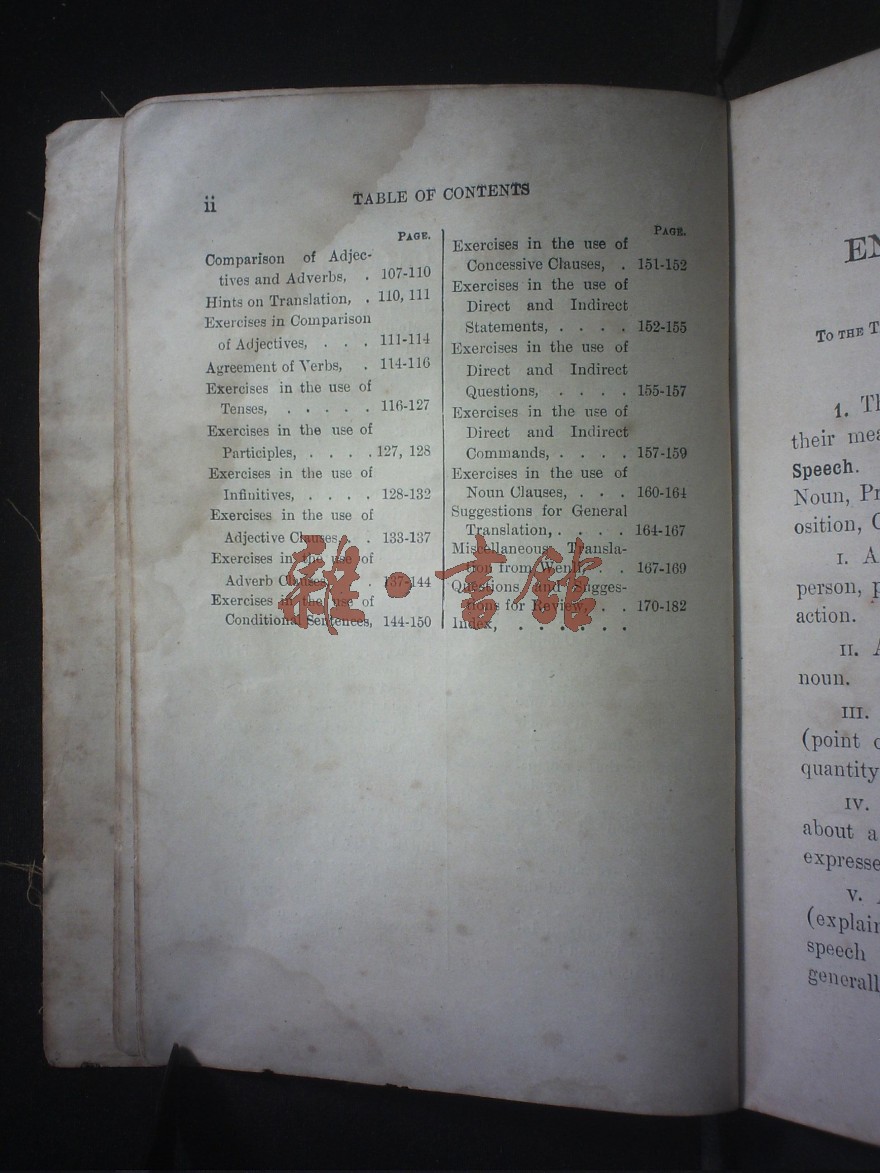 ii
TABLE OF CONTENTS
PAGE.
Comparison of Adjec-
tives and Adverbs, . 107-110
Hints on Translation, . 110, 111
Exercises in Comparison
of Adjectives, . . . 111-114
Agreement of Verbs, . 114-116
Exercises in the use of
Tenses, . . . . . 116-127
Exercises in the use of
Participles, . . . . 127, 128
Exercises in the use of
Infinitives, . . . . 128-132
Exercises in the use of
Adjective Clauses, . . 133-137
Exercises in the use of
Adverb Clauses, . . 137-144
Exercises in the use of
Conditional Sentences, 144-150
PAGE.
Exercises in the use of
Concessive Clauses, . 151-152
Exercises in the use of
Direct and Indirect
Statements, . . . . 152-155
Exercises in the use of
Direct and Indirect
Questions, . . . . 155-157
Exercises in the use of
Direct and Indirect
Commands, . . . . 157-159
Exercises in the use of
Noun Clauses, . . . 160-164
Suggestions for General
Translation, . . . . 164-167
Miscellaneous Transla-
tion from Wenli, . . 167-169
Questions and Sugges-
tions for Review, . . 170-182
Index, . . . . . .
雜·書館
EN
TO THE T
1. Th
their mea
Speech.
Noun, Pr
osition, C
I. A
person, p
action.
II. A
noun.
III.
(point o
quantity
IV.
about a
expresse
V.
(explain
speech
generall